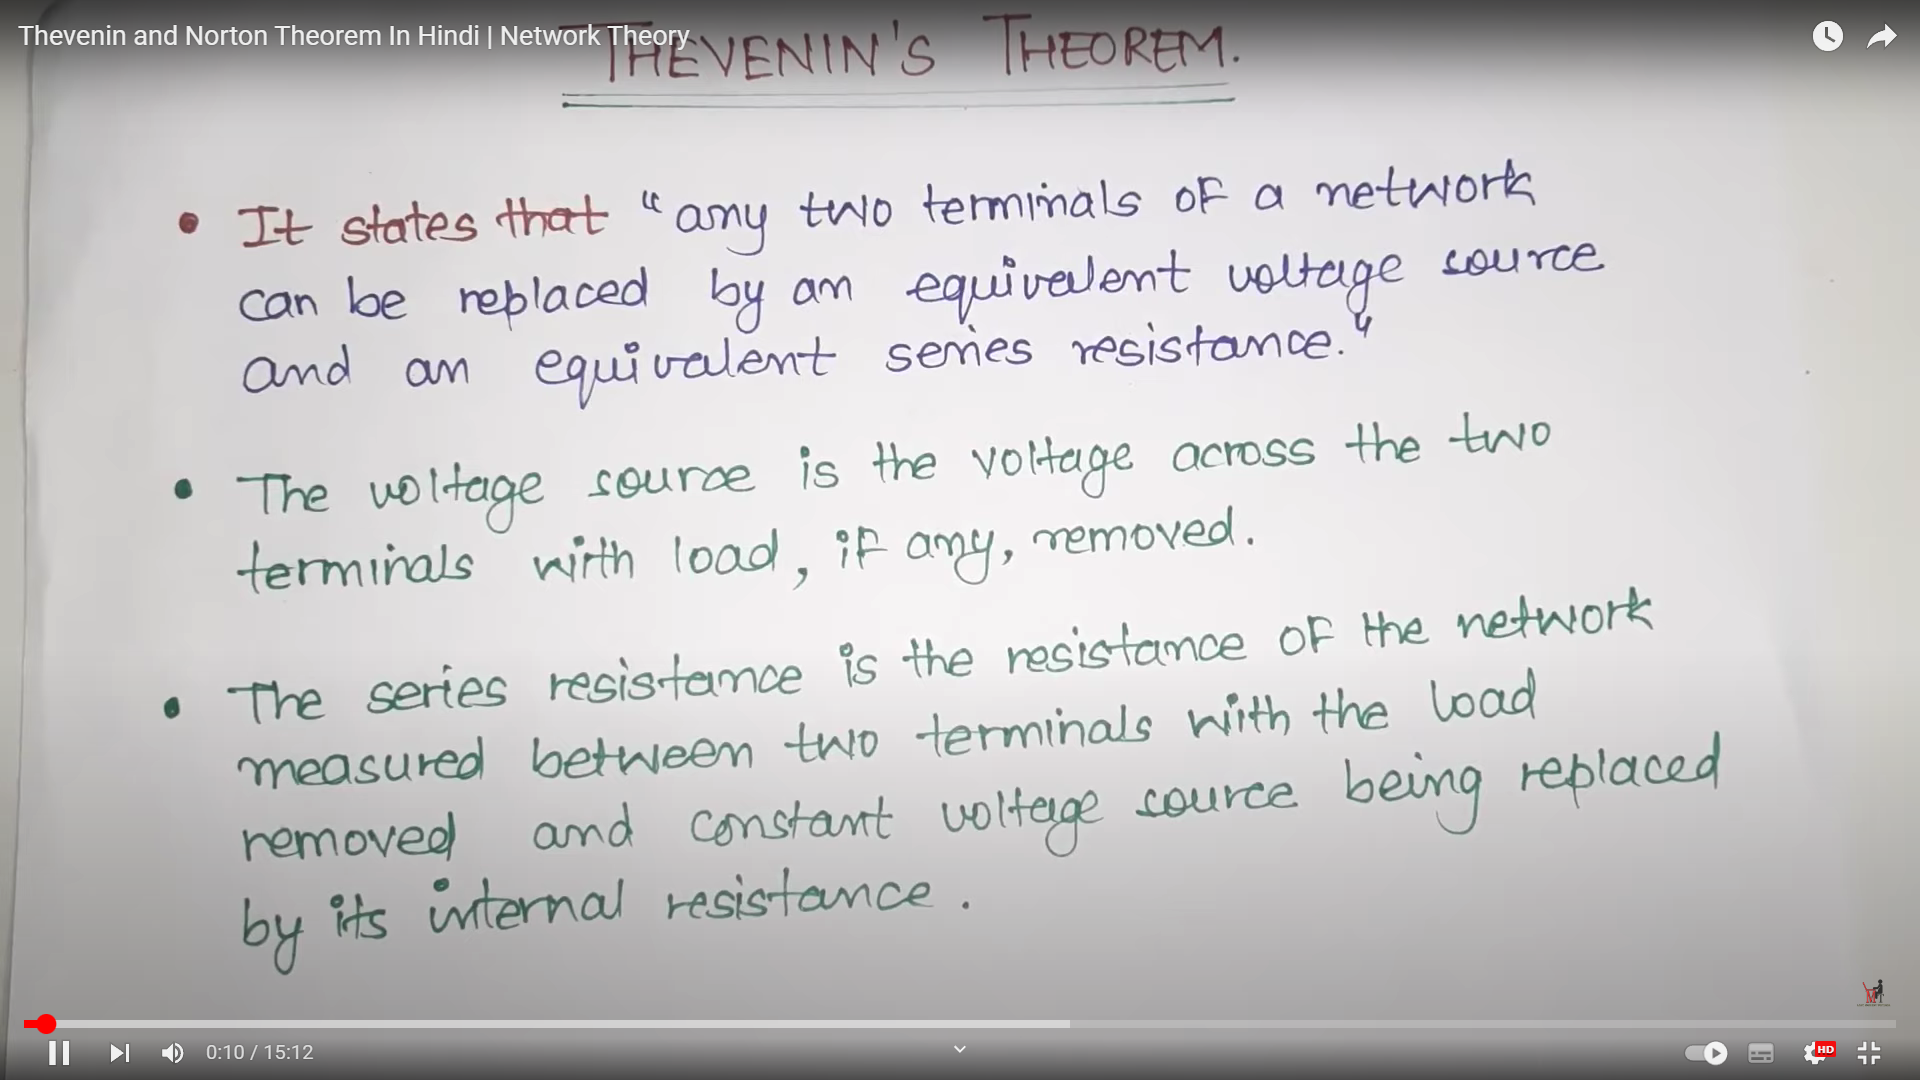 Thevenin and Norton Theorem In Hindi | Network Theory
THEVENIN'S THEOREM.
• It states that "any two terminals of a network
can be replaced by an equivalent voltage source
and an equivalent series resistance."
• The voltage source is the voltage across the two
terminals with load, if any, removed.
• The series resistance is the resistance of the network
measured between two terminals with the load
removed and constant voltage source being replaced
by its internal resistance.
0:10 / 15:12
HD